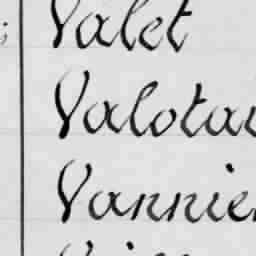 Valet
Valotau
Vannier